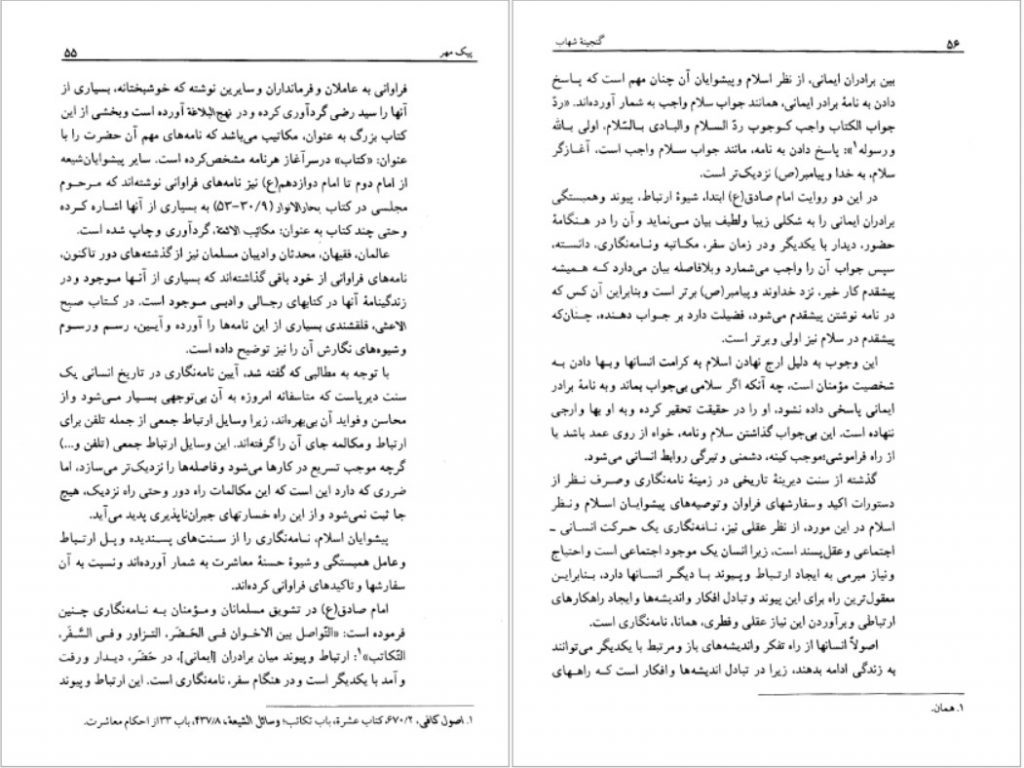 پیک مهر
۵۵
فراوانی به عاملان و فرمانداران و سایرین نوشته که خوشبختانه، بسیاری از
آنها را سید رضی گردآوری کرده و در نهج‌البلاغة آورده است وبخشی از این
کتاب بزرگ به عنوان، مکاتیب می‌باشد که نامه‌های مهم آن حضرت را با
عنوان: «کتاب» درسرآغاز هرنامه مشخص‌کرده است. سایر پیشوایان‌شیعه
از امام دوم تا امام دوازدهم(ع) نیز نامه‌های فراوانی نوشته‌اند که مرحوم
مجلسی در کتاب بحارالانوار (۳۰/۹-۵۳) به بسیاری از آنها اشاره کرده
وحتی چند کتاب به عنوان: مکاتیب الائمّة، گردآوری و چاپ شده است.
عالمان، فقیهان، محدثان و ادیبان مسلمان نیز ازگذشته‌های دور تاکنون،
نامه‌های فراوانی از خود باقی گذاشته‌اند که بسیاری از آنها موجود و در
زندگینامۀ آنها در کتابهای رجالی وادبی موجود است. در کتاب صبح
الاعشی، قلقشندی بسیاری از این نامه‌ها را آورده و آیین، رسم و رسوم
وشیوه‌های نگارش آن را نیز توضیح داده است.
با توجه به مطالبی که گفته شد، آیین نامه‌نگاری در تاریخ انسانی یک
سنت دیرپاست که متاسفانه امروزه به آن بی‌توجهی بسیار می‌شود و از
محاسن و فواید آن بی‌بهره‌اند، زیرا وسایل ارتباط جمعی از جمله تلفن برای
ارتباط و مکالمه جای آن را گرفته‌اند. این وسایل ارتباط جمعی (تلفن و...)
گرچه موجب تسریع در کارها می‌شود وفاصله‌ها را نزدیک‌تر می‌سازد، اما
ضرری که دارد این است که این مکالمات راه دور وحتی راه نزدیک، هیچ
جا ثبت نمی‌شود و از این راه خسارتهای جبران‌ناپذیری پدید می‌آید.
پیشوایان اسلام، نامه‌نگاری را از سنت‌های پسندیده و پل ارتباط
وعامل همبستگی و شیوۀ حسنۀ معاشرت به شمار آورده‌اند ونسبت به آن
سفارشها و تاکیدهای فراوانی کرده‌اند.
امام صادق(ع) در تشویق مسلمانان و مؤمنان به نامه‌نگاری چنین
فرموده است: «التّواصل بین الاخوان فی الحَضَر، التزاور وفی السَّفَر،
التّکاتب»۱: ارتباط و پیوند میان برادران [ایمانی]، در حَضَر، دیدار و رفت
و آمد با یکدیگر است و در هنگام سفر، نامه‌نگاری است. این ارتباط و پیوند
۱. اصول کافی، ۶۷۰/۲، کتاب عشرة، باب تکاتب؛ وسائل الشیعة، ۴۳۷/۸، باب ۳۳ از احکام معاشرت.
۵۶
گنجینۀ شهاب
بین برادران ایمانی، از نظر اسلام وپیشوایان آن چنان مهم است که پاسخ
دادن به نامۀ برادر ایمانی، همانند جواب سلام واجب به شمار آورده‌اند. «ردّ
جواب الکتاب واجب کوجوب ردّ السلام والبادی بالسّلام، اولی بالله
ورسوله۱»: پاسخ دادن به نامه، مانند جواب سلام واجب است، آغازگر
سلام، به خدا و پیامبر(ص) نزدیک‌تر است.
در این دو روایت امام صادق(ع) ابتدا، شیوۀ ارتباط، پیوند وهمبستگی
برادران ایمانی را به شکلی زیبا ولطیف بیان می‌نماید و آن را در هنگامۀ
حضور، دیدار با یکدیگر ودر زمان سفر، مکاتبه ونامه‌نگاری، دانسته،
سپس جواب آن را واجب می‌شمارد وبلافاصله بیان می‌دارد که همیشه
پیشقدم کار خیر، نزد خداوند وپیامبر(ص) برتر است وبنابراین آن کس که
در نامه نوشتن پیشقدم می‌شود، فضیلت دارد بر جواب دهنده، چنان‌که
پیشقدم در سلام نیز اولی وبرتر است.
این وجوب به دلیل ارج نهادن اسلام به کرامت انسانها وبها دادن به
شخصیت مؤمنان است، چه آنکه اگر سلامی بی‌جواب بماند وبه نامۀ برادر
ایمانی پاسخی داده نشود، او را در حقیقت تحقیر کرده وبه او بها وارجی
ننهاده است. این بی‌جواب گذاشتن سلام ونامه، خواه از روی عمد باشد یا
از راه فراموشی؛موجب کینه، دشمنی و تیرگی روابط انسانی می‌شود.
گذشته از سنت دیرینۀ تاریخی در زمینۀ نامه‌نگاری وصرف نظر از
دستورات اکید وسفارشهای فراوان وتوصیه‌های پیشوایان اسلام ونظر
اسلام در این مورد، از نظر عقلی نیز، نامه‌نگاری یک حرکت انسانی ـ
اجتماعی وعقل‌پسند است، زیرا انسان یک موجود اجتماعی است واحتیاج
ونیاز مبرمی به ایجاد ارتباط وپیوند با دیگر انسانها دارد، بنابراین
معقول‌ترین راه برای این پیوند وتبادل افکار واندیشه‌ها وایجاد راهکارهای
ارتباطی وبرآوردن این نیاز عقلی وفطری، همانا، نامه‌نگاری است.
اصولاً انسانها از راه تفکر واندیشه‌های باز ومرتبط با یکدیگر می‌توانند
به زندگی ادامه بدهند، زیرا در تبادل اندیشه‌ها وافکار است که راههای
۱. همان.